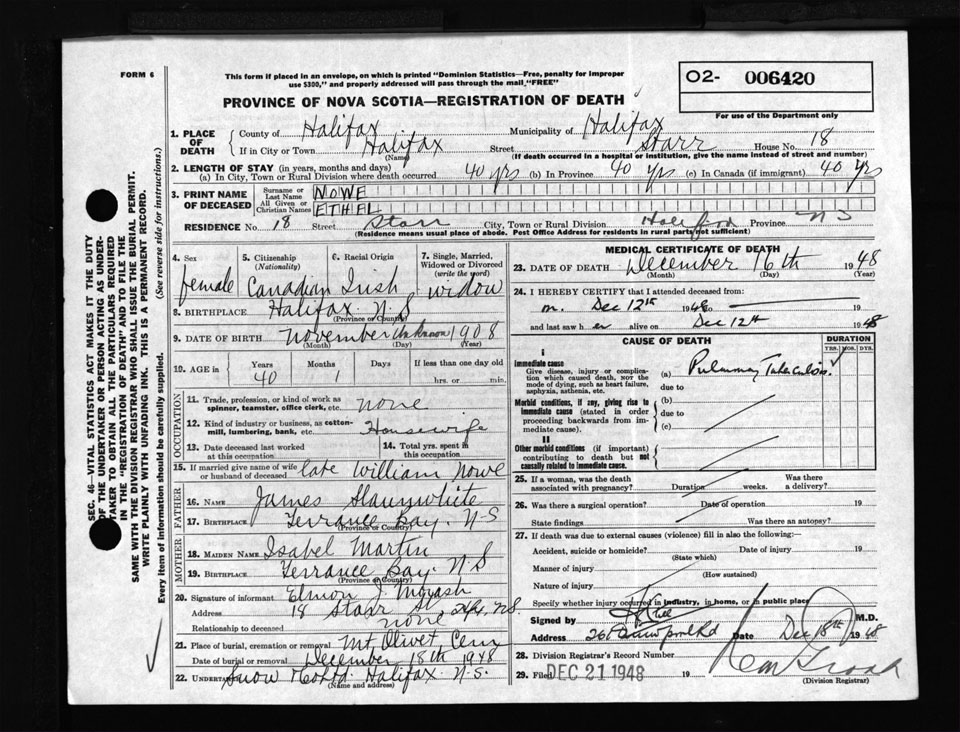 FORM 6
This form if placed in an envelope, on which is printed "Dominion Statistics—Free, penalty for improper
use $300," and properly addressed will pass through the mail "FREE"
O2- 006420
For use of the Department only
PROVINCE OF NOVA SCOTIA—REGISTRATION OF DEATH
1. PLACE OF DEATH
County of Halifax Municipality of Halifax
If in City or Town Halifax Street Starr House No. 18
(Name) (If death occurred in a hospital or institution, give the name instead of street and number)
2. LENGTH OF STAY (in years, months and days)
(a) In City, Town or Rural Division where death occurred 40 yrs (b) In Province 40 yrs (c) In Canada (if immigrant) 40 yrs
3. PRINT NAME OF DECEASED
Surname or Last Name NOWE
All Given or Christian Names ETHEL
RESIDENCE No. 18 Street Starr City, Town or Rural Division Province N S
(Residence means usual place of abode. Post Office Address for residents in rural parts not sufficient)
4. Sex female
5. Citizenship (Nationality) Canadian
6. Racial Origin Irish
7. Single, Married, Widowed or Divorced (write the word) widow
8. BIRTHPLACE Halifax N.S
(Province or Country)
9. DATE OF BIRTH November Unknown 1908
(Month) (Day) (Year)
10. AGE in Years 40 Months 1 Days If less than one day old hrs. or min.
OCCUPATION
11. Trade, profession, or kind of work as spinner, teamster, office clerk, etc. none
12. Kind of industry or business, as cotton-mill, lumbering, bank, etc. Housewife
13. Date deceased last worked at this occupation
14. Total yrs. spent in this occupation
15. If married give name of wife or husband of deceased late William Nowe
FATHER
16. Name James Slaunwhite
17. Birthplace Terrance Bay. N-S
(Province or Country)
MOTHER
18. Maiden Name Isabel Martin
19. Birthplace Terrance Bay. N S
(Province or Country)
20. Signature of informant
Address 18 Starr St, Hfx, N.S.
Relationship to deceased none
21. Place of burial, cremation or removal Mt. Olivet Cem
Date of burial or removal December 18th 1948
22. Undertaker Snow & Co Ltd. Halifax. N.S.
(Name and address)
MEDICAL CERTIFICATE OF DEATH
23. DATE OF DEATH December 16th 1948
(Month) (Day) (Year)
24. I HEREBY CERTIFY that I attended deceased from:
Dec 12th 1948 to 19
and last saw h er alive on Dec 12th 1948
CAUSE OF DEATH
DURATION
YRS. MOS. DYS.
I
Immediate cause
Give disease, injury or complication which caused death, not the mode of dying, such as heart failure, asphyxia, asthenia, etc.
(a) Pulmonary Tuberculosis.
due to
Morbid conditions, if any, giving rise to immediate cause (stated in order proceeding backwards from immediate cause).
(b)
due to
(c)
II
Other morbid conditions (if important) contributing to death but not causally related to immediate cause.
25. If a woman, was the death associated with pregnancy? Duration weeks. Was there a delivery?
26. Was there a surgical operation? Date of operation 19
State findings Was there an autopsy?
27. If death was due to external causes (violence) fill in also the following:—
Accident, suicide or homicide? Date of injury 19
(State which)
Manner of injury
(How sustained)
Nature of injury
Specify whether injury occurred in industry, in home, or in public place
Signed by M.D.
Address Date Dec 18th 1948
28. Division Registrar's Record Number
29. Filed DEC 21 1948 19
(Division Registrar)
SEC. 46—VITAL STATISTICS ACT MAKES IT THE DUTY
OF THE UNDERTAKER OR PERSON ACTING AS UNDER-
TAKER TO OBTAIN ALL THE PARTICULARS REQUIRED
IN THE "REGISTRATION OF DEATH" AND TO FILE THE
SAME WITH THE DIVISION REGISTRAR WHO SHALL ISSUE THE BURIAL PERMIT.
WRITE PLAINLY WITH UNFADING INK. THIS IS A PERMANENT RECORD.
Every item of information should be carefully supplied. (See reverse side for instructions.)